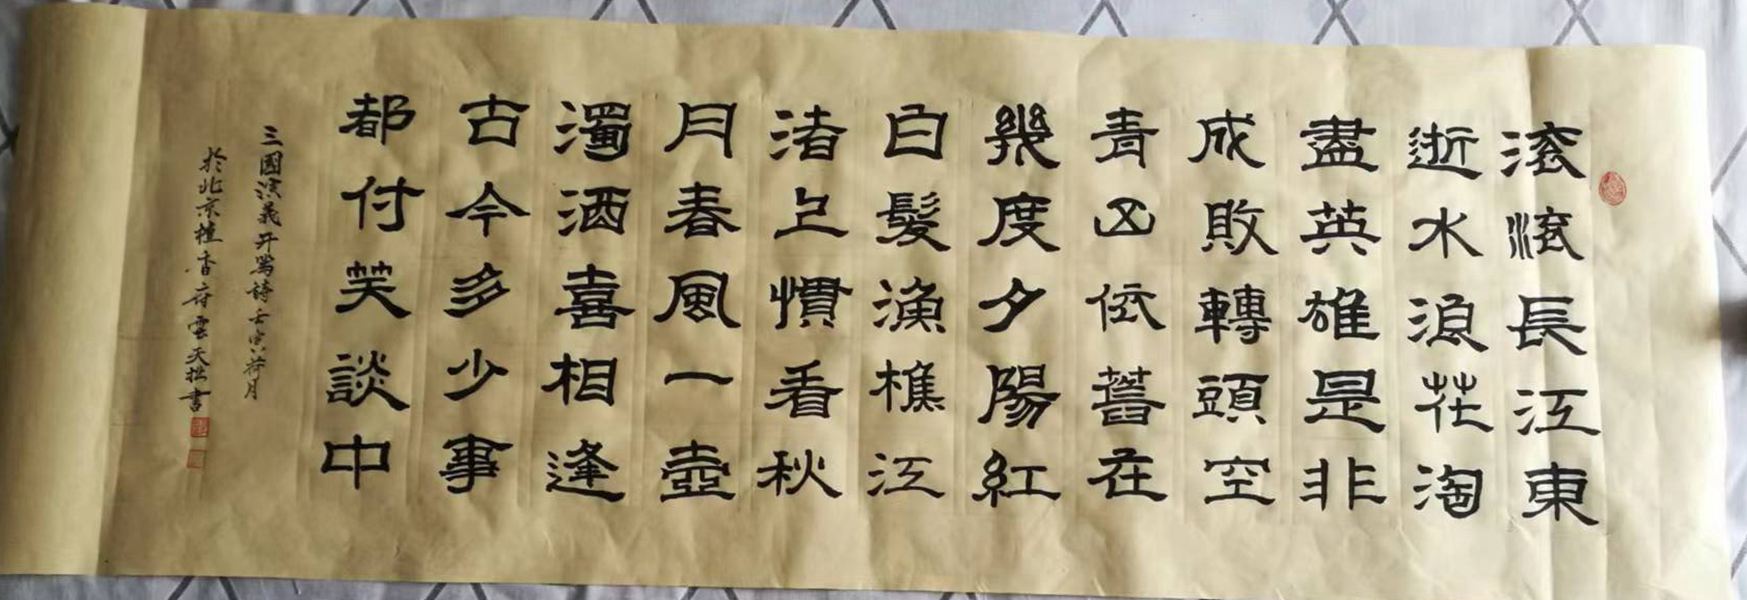 滚滚長江東
逝水浪花淘
盡英雄是非
成敗轉頭空
青山依舊在
幾度夕陽紅
白髮漁樵江
渚上慣看秋
月春風一壺
濁酒喜相逢
古今多少事
都付笑談中
三國演義开篇詩壬寅荷月
於北京檀香府雲天拙書